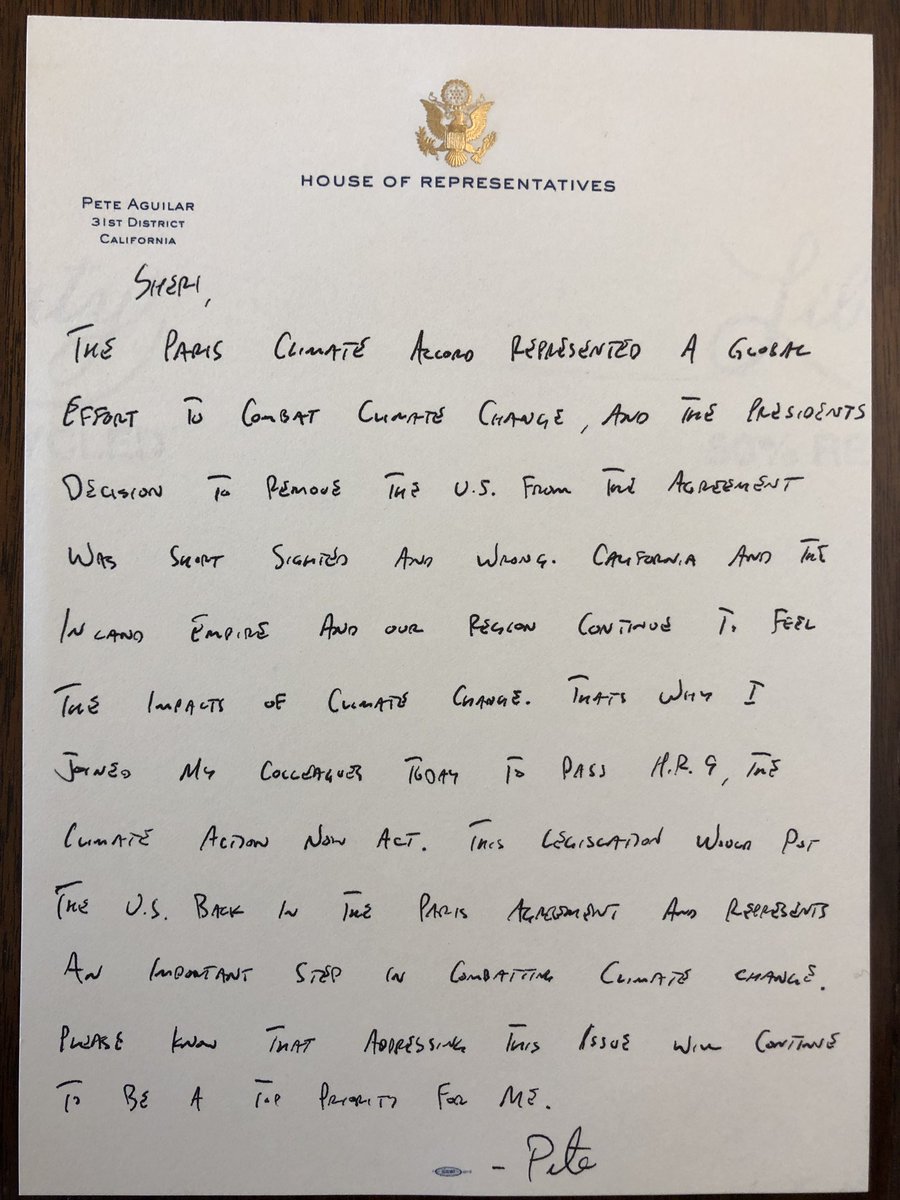 HOUSE OF REPRESENTATIVES
PETE AGUILAR
31ST DISTRICT
CALIFORNIA
SHERI,
THE PARIS CLIMATE ACCORD REPRESENTED A GLOBAL
EFFORT TO COMBAT CLIMATE CHANGE, AND THE PRESIDENTS
DECISION TO REMOVE THE U.S. FROM THE AGREEMENT
WAS SHORT SIGHTED AND WRONG. CALIFORNIA AND THE
INLAND EMPIRE AND OUR REGION CONTINUE TO FEEL
THE IMPACTS OF CLIMATE CHANGE. THATS WHY I
JOINED MY COLLEAGUES TODAY TO PASS H.R. 9, THE
CLIMATE ACTION NOW ACT. THIS LEGISLATION WOULD PUT
THE U.S. BACK IN THE PARIS AGREEMENT AND REPRESENTS
AN IMPORTANT STEP IN COMBATTING CLIMATE CHANGE.
PLEASE KNOW THAT ADDRESSING THIS ISSUE WILL CONTINUE
TO BE A TOP PRIORITY FOR ME.
- Pete